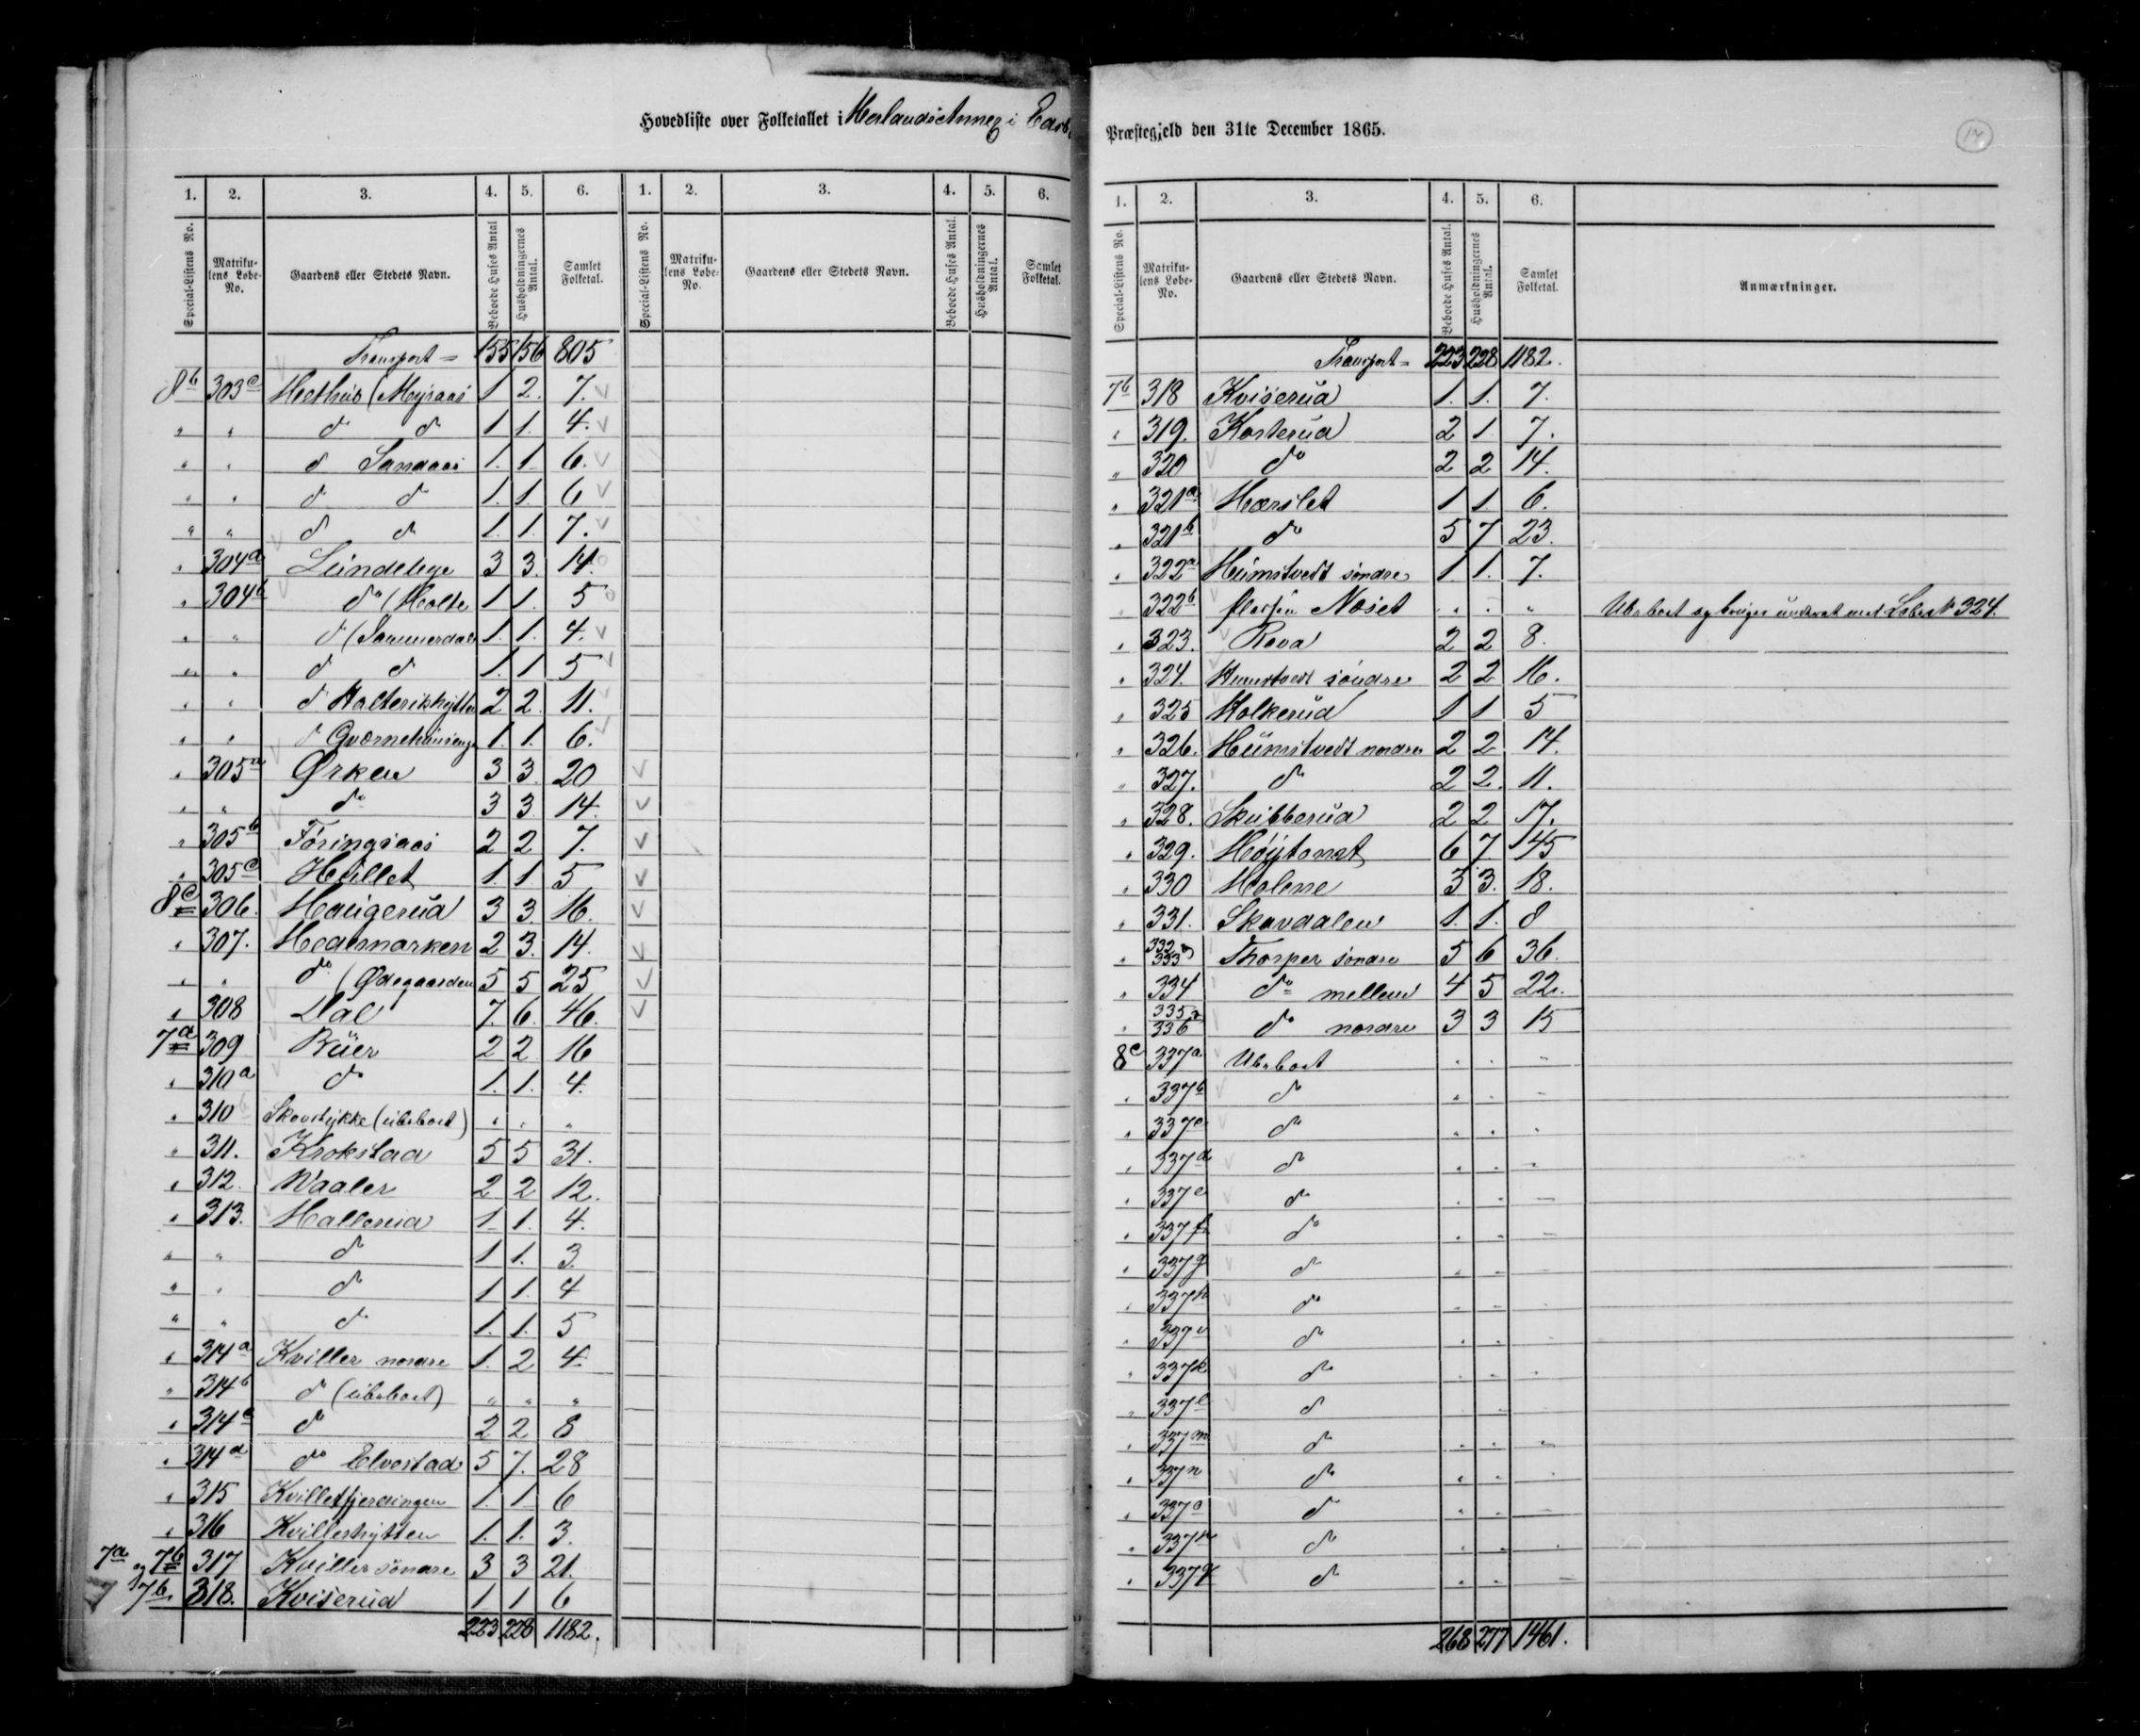 Hovedliste over Folketallet i Herlands Annex i
Præstegjeld den 31te December 1865.
17
1. 2. 3. 4. 5. 6. 1. 2. 3. 4. 5. 6.
Special-Listens No. Matrikulens Løbe-No. Gaardens eller Stedets Navn. Beboede Huses Antal Husholdningernes Antal. Samlet Folketal. Special-Listens No. Matrikulens Løbe-No. Gaardens eller Stedets Navn. Beboede Huses Antal. Husholdningernes Antal. Samlet Folketal.
Transport = 155 156 805
8b 303c (Mejsaas 1 2. 7.
" " do do 1 1. 4.
" " do Sandaas 1. 1 6.
" " do do 1. 1. 6
" " do do 1. 1. 7.
" 304a Lundebye 3 3. 14.
" 304b do (Holte 1 1. 5
" " do (Sammerdal 1. 1. 4.
" " do do 1. 1 5
" " do 2 2. 11.
" " do 1. 1. 6.
" 305a Ørken 3 3. 20
" " do 3 3. 14.
" 305b Føringsaas 2 2 7.
" 305c Hullet 1. 1 5
8c 306. Haugerud 3 3 16.
" 307. Hedemarken 2 3. 14.
" " do (Ødegaarden 5 5 25
" 308 Dal 7. 6. 46.
7a 309 Buer 2 2 16
" 310a do 1. 1. 4.
" 310b Skovstykke (ubeboet) " " "
" 311. Krokstad 5 5 31.
" 312. Waaler 2 2 12.
" 313. Hallerud 1 1. 4.
" " do 1 1. 3.
" " do 1 1. 4
" " do 1. 1. 5
" 314a Kviller nordre 1. 2 4.
" 314b do (ubeboet) " " "
" 314c do 2 2 8
" 314d do Elvestad 5 7. 28
" 315 Kvillerfjerdingen 1. 1 6
" 316 Kvillerhytten 1. 1. 3.
7a og 7b 317 Kviller søndre 3 3 21.
7b 318. Kviserud 1 1 6
223 228 1182.
1. 2. 3. 4. 5. 6.
Special-Listens No. Matrikulens Løbe-No. Gaardens eller Stedets Navn. Beboede Huses Antal. Husholdningernes Antal. Samlet Folketal. Anmærkninger.
Transport = 223 228 1182.
7b 318 Kviserud 1. 1. 7.
" 319. Kosterud 2 1 7.
" 320 do 2 2 14.
" 321a Hærslet 1 1. 6.
" 321b do 5 7 23.
" 322a Heimstvedt søndre 1. 1. 7.
" 322b Noset " " " Ubeboet og bruges underet med Løbe No 324.
" 323. Rova 2 2 8.
" 324. Heimstvedt søndre 2 2 16.
" 325 Holkerud 1 1 5
" 326. Heimstvedt nordre 2 2 14.
" 327. do 2 2. 11.
" 328. Skubberud 2 2 17.
" 329. Høytomt 6 7. 45
" 330 Holene 3 3. 18.
" 331. Skovdalen 1. 1. 8
" 332 333 Thorper søndre 5 6 36.
" 334 do mellem 4 5 22.
" 335 336 do nordre 3 3 15
8c 337a Ubeboet " " "
" 337b do " " "
" 337c do " " "
" 337d do " " "
" 337e do " " "
" 337f do " " "
" 337g do " " "
" 337h do " " "
" 337i do " " "
" 337k do " " "
" 337l do " " "
" 337m do " " "
" 337n do " " "
" 337o do " " "
" 337p do " " "
" 337q do " " "
268 277 1461.